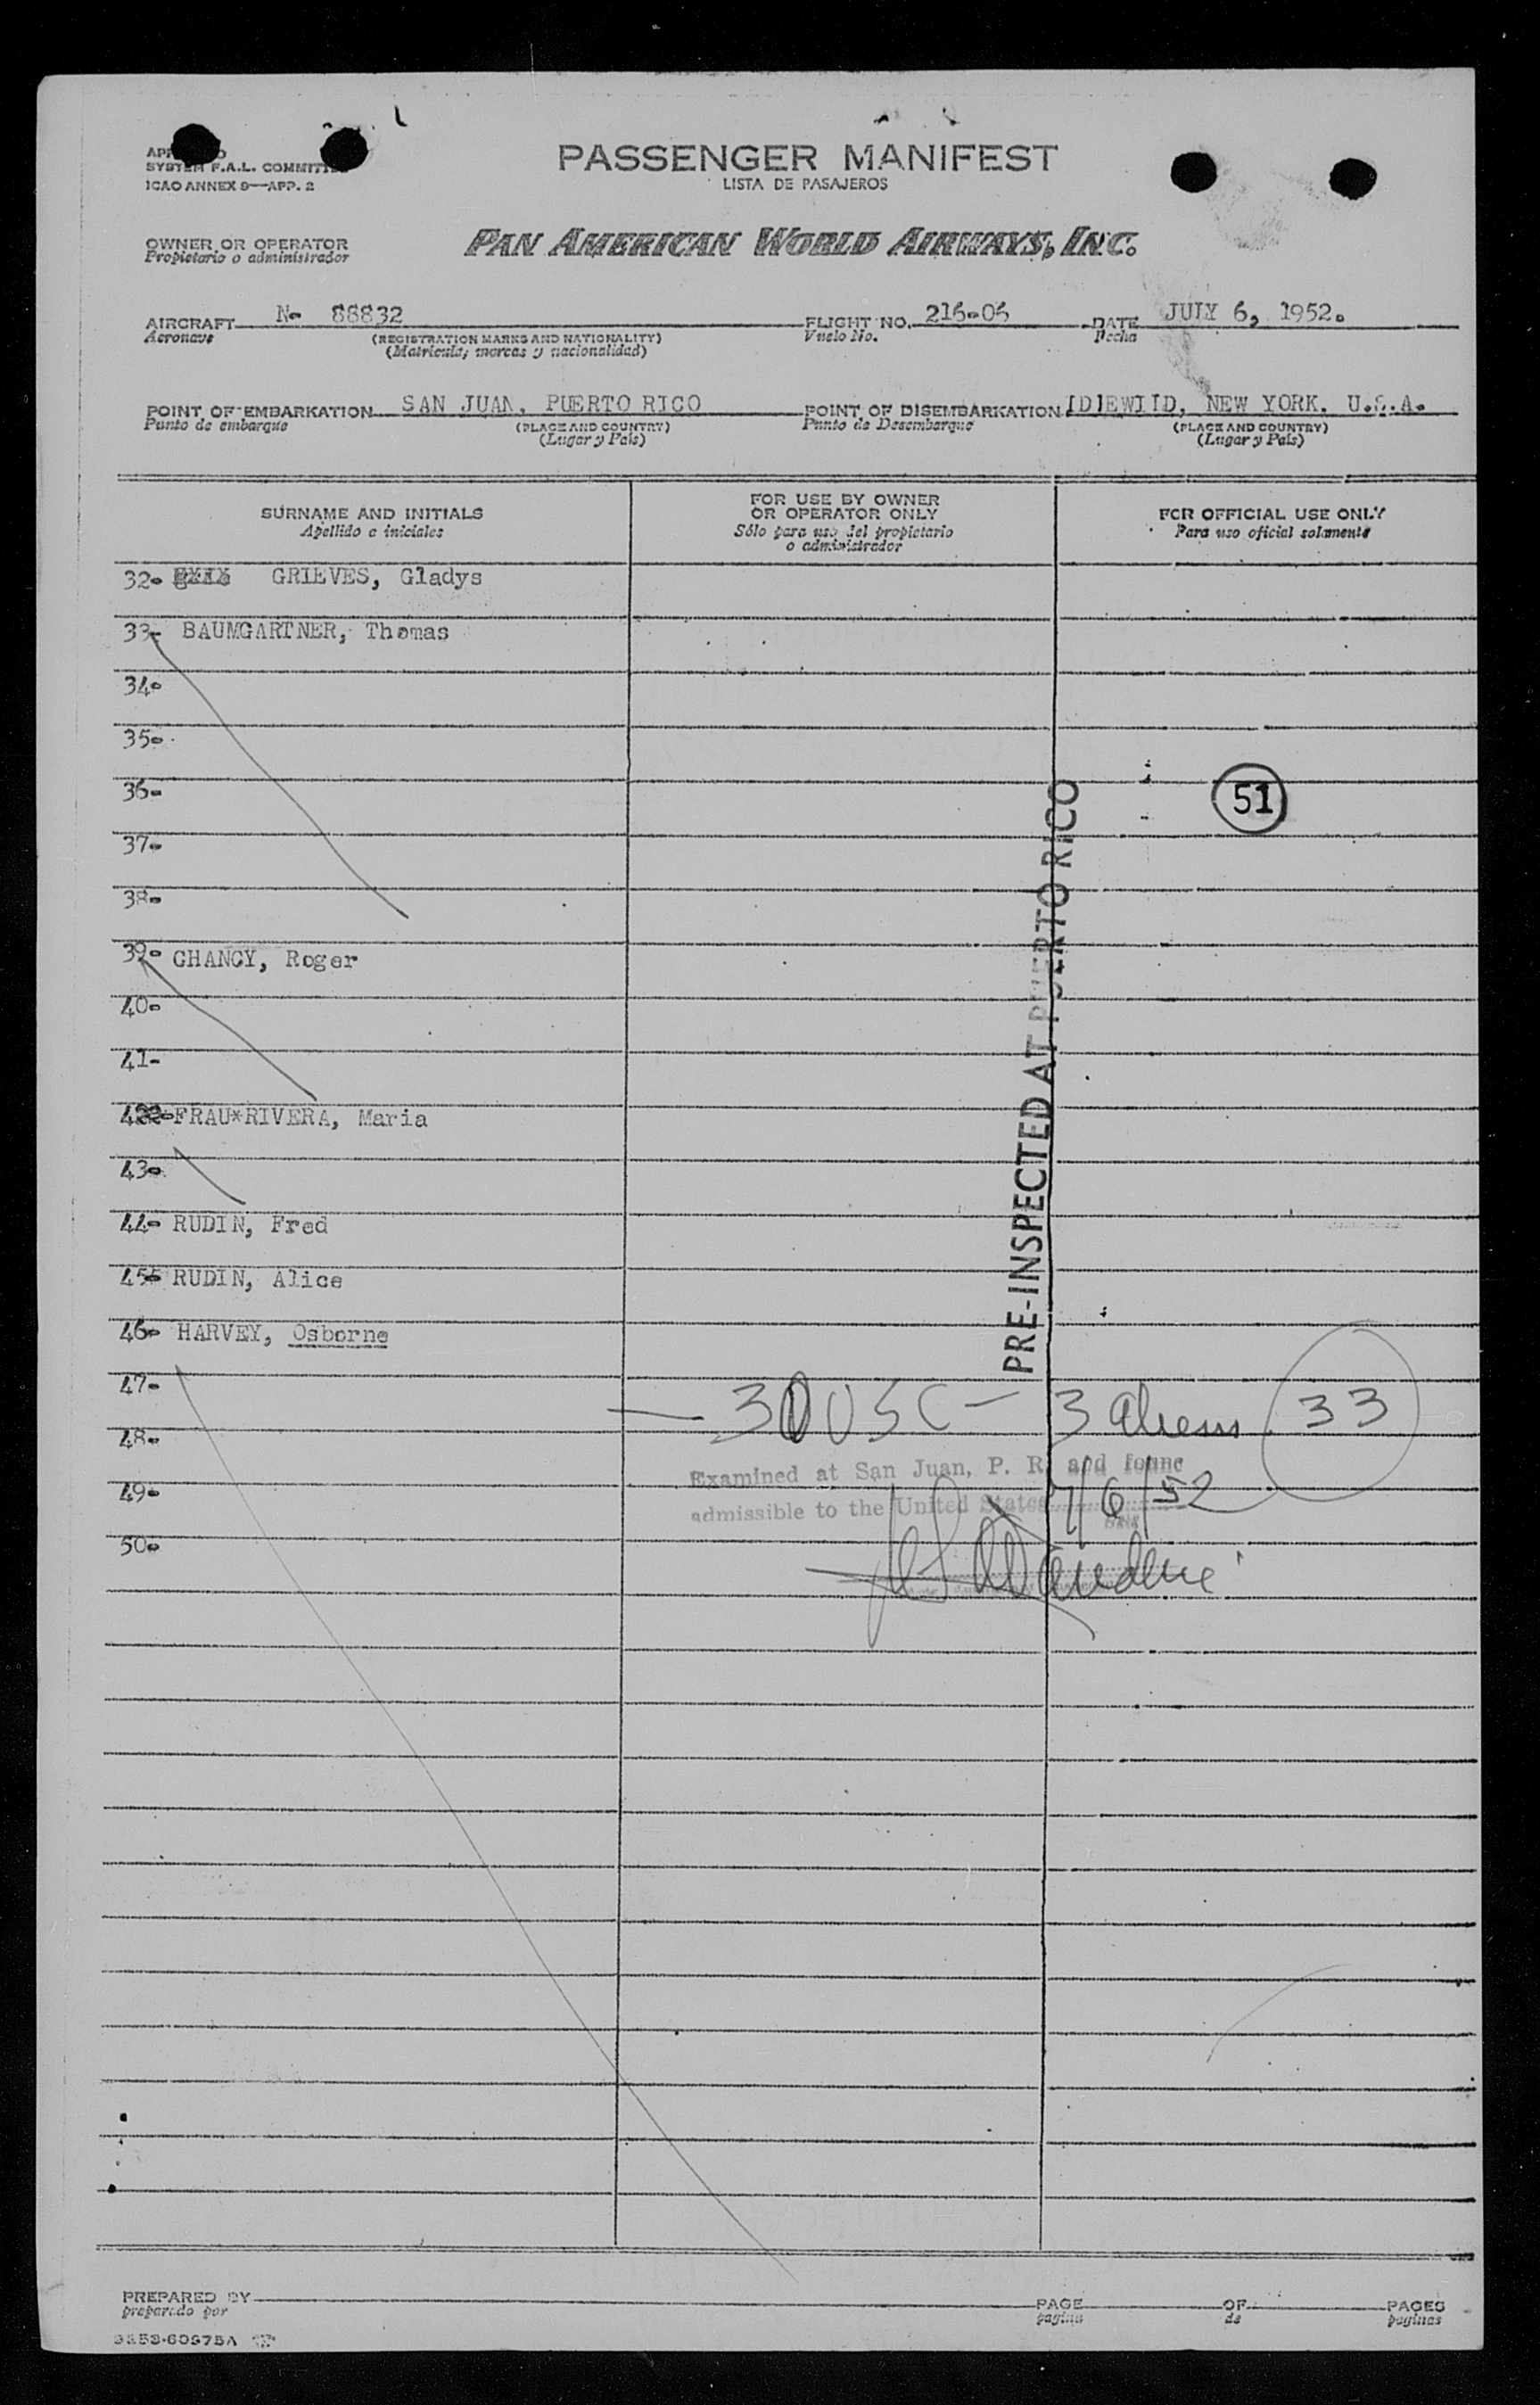 PASSENGER MANIFEST
LISTA DE PASAJEROS
SYSTEM F.A.L.
ICAO ANNEX 9—APP. 2
OWNER OR OPERATOR
Propietario o administrador
PAN AMERICAN WORLD AIRWAYS, INC.
AIRCRAFT N- 88832 FLIGHT NO. 216-06 DATE JULY 6, 1952.
Aeronave (REGISTRATION MARKS AND NATIONALITY) Vuelo No. Fecha
(Matricula, marcas y nacionalidad)
POINT OF EMBARKATION SAN JUAN, PUERTO RICO POINT OF DISEMBARKATION IDLEWILD, NEW YORK. U.S.A.
Punto de embarque (PLACE AND COUNTRY) Punto de Desembarque (PLACE AND COUNTRY)
(Lugar y País) (Lugar y País)
SURNAME AND INITIALS
Apellido e iniciales
FOR USE BY OWNER
OR OPERATOR ONLY
Sólo para uso del propietario
o administrador
FOR OFFICIAL USE ONLY
Para uso oficial solamente
32- GRIEVES, Gladys
33- BAUMGARTNER, Thomas
34-
35-
36-
51
37-
38-
39- CHANCY, Roger
40-
41-
42- FRAU*RIVERA, Maria
43-
44- RUDIN, Fred
45- RUDIN, Alice
46- HARVEY, Osborne
47-
48-
49-
50-
PRE-INSPECTED AT PUERTO RICO
— 30 USC — 3 aliens 33
Examined at San Juan, P. R. and found
admissible to the United States 7/6/52
PREPARED BY PAGE OF PAGES
preparado por pagina de paginas